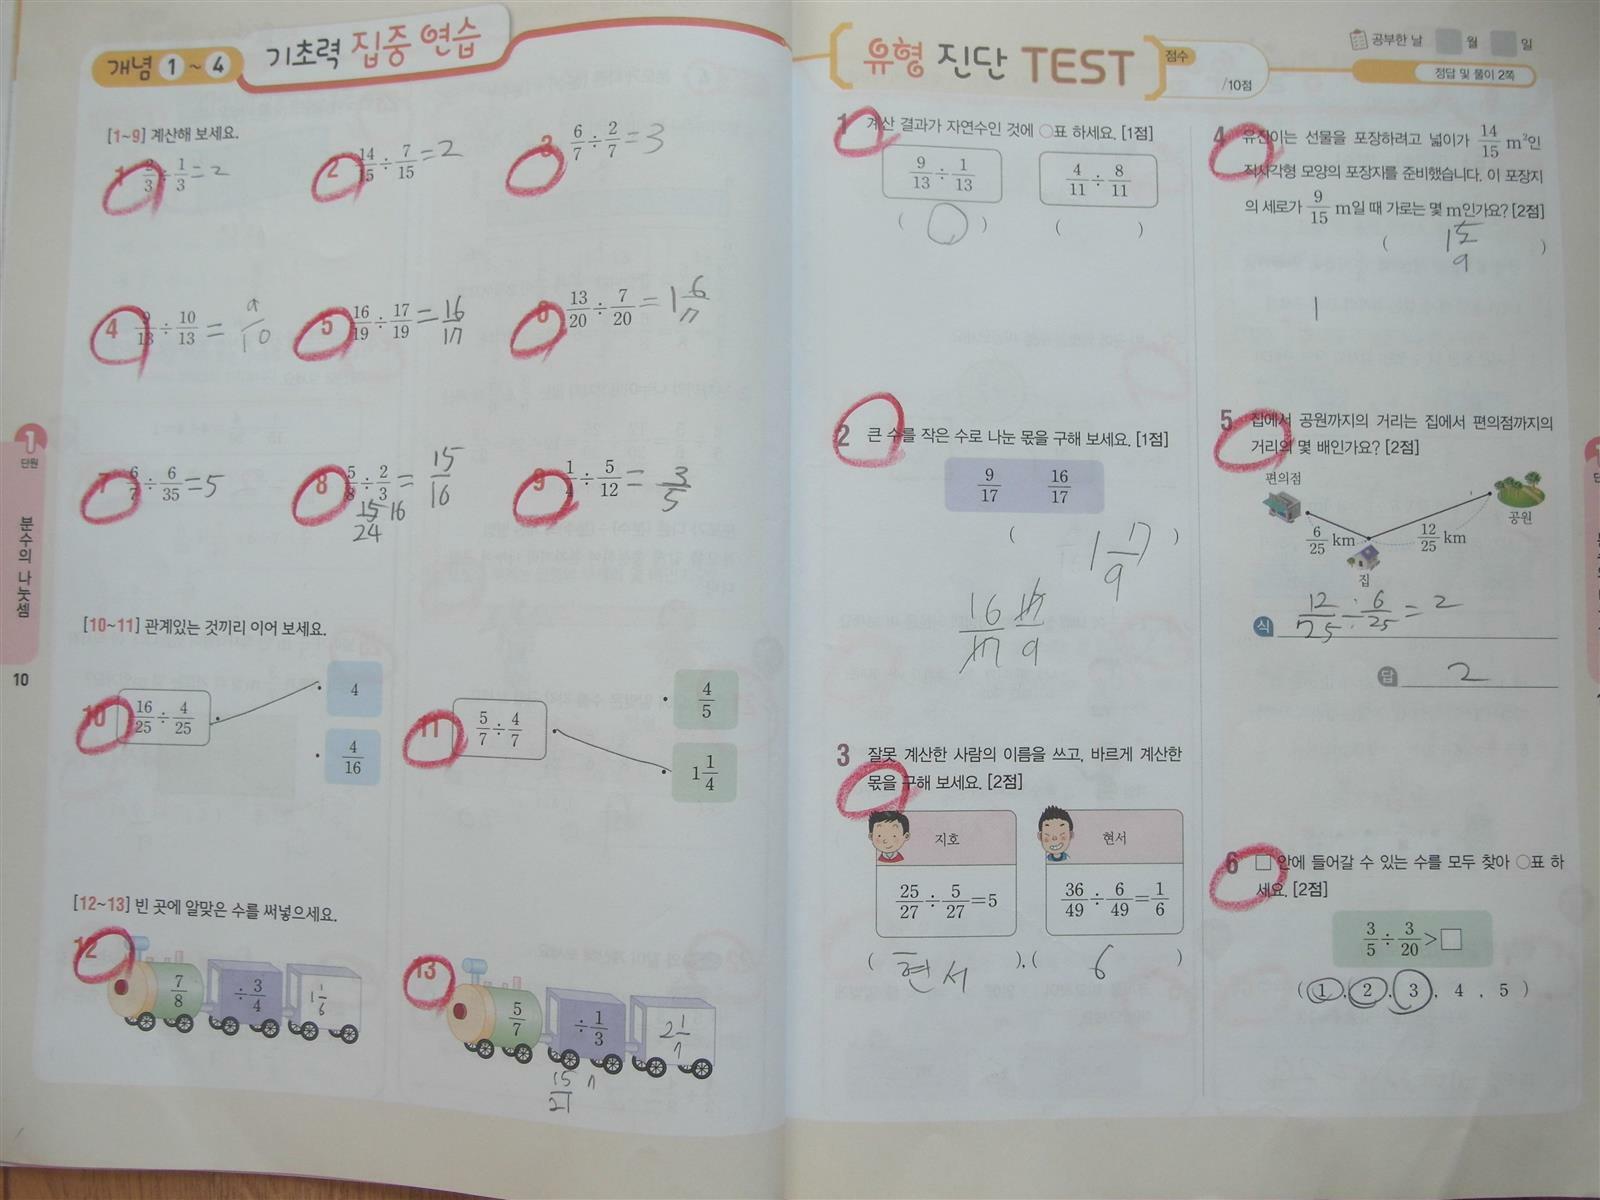 개념 1 ~ 4 기초력 집중 연습
[1~9] 계산해 보세요.
1 2/3 ÷ 1/3 = 2
2 14/15 ÷ 7/15 = 2
3 6/7 ÷ 2/7 = 3
4 9/13 ÷ 10/13 = 9/10
5 16/19 ÷ 17/19 = 16/17
6 13/20 ÷ 7/20 = 1 6/7
7 6/7 ÷ 6/35 = 5
8 5/8 ÷ 2/3 = 15/16
15 16
24
9 1/4 ÷ 5/12 = 3/5
[10~11] 관계있는 것끼리 이어 보세요.
10 16/25 ÷ 4/25
4
4/16
11 5/7 ÷ 4/7
4/5
1 1/4
[12~13] 빈 곳에 알맞은 수를 써넣으세요.
12 7/8 ÷ 3/4 1 1/6
13 5/7 ÷ 1/3 2 1/7
15 7
21
1
단원
분수의 나눗셈
10
유형 진단 TEST
점수
/10점
공부한 날 월 일
정답 및 풀이 2쪽
1 계산 결과가 자연수인 것에 ○표 하세요. [1점]
9/13 ÷ 1/13 4/11 ÷ 8/11
( ○ ) ( )
2 큰 수를 작은 수로 나눈 몫을 구해 보세요. [1점]
9/17 16/17
( 1 7/9 )
16/17 17/9
3 잘못 계산한 사람의 이름을 쓰고, 바르게 계산한
몫을 구해 보세요. [2점]
지호 현서
25/27 ÷ 5/27 = 5 36/49 ÷ 6/49 = 1/6
( 현서 ), ( 6 )
4 유진이는 선물을 포장하려고 넓이가 14/15 m²인
직사각형 모양의 포장지를 준비했습니다. 이 포장지
의 세로가 9/15 m일 때 가로는 몇 m인가요? [2점]
( 1 5/9 )
5 집에서 공원까지의 거리는 집에서 편의점까지의
거리의 몇 배인가요? [2점]
편의점
공원
6/25 km 12/25 km
집
식 12/25 ÷ 6/25 = 2
답 2
6 □ 안에 들어갈 수 있는 수를 모두 찾아 ○표 하
세요. [2점]
3/5 ÷ 3/20 > □
( 1 , 2 , 3 , 4 , 5 )